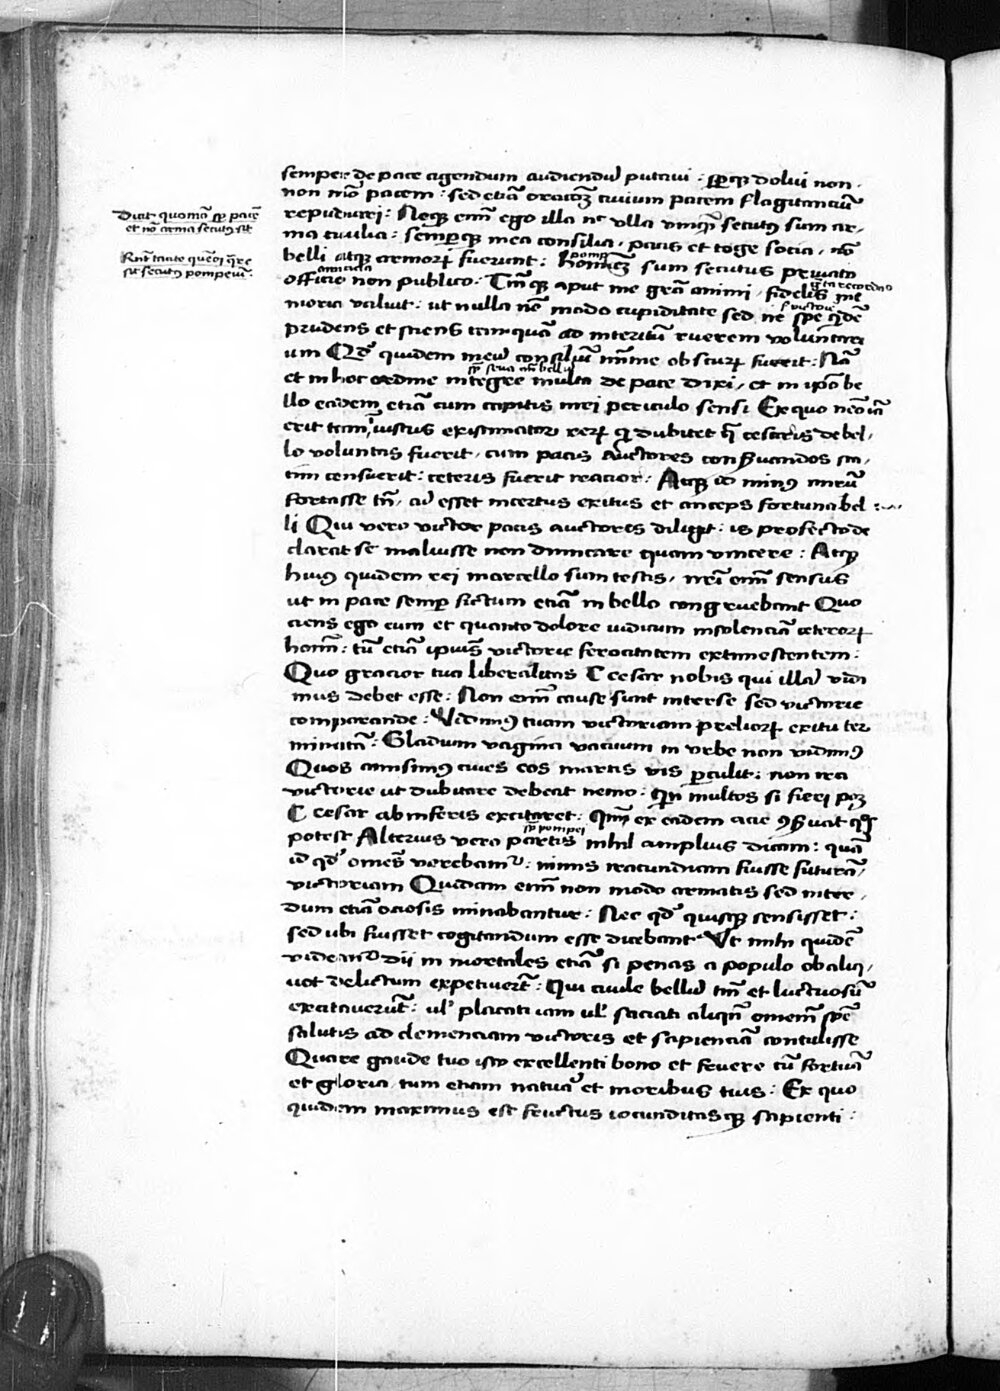 semper de pace agendum audiendũ putavi : semperqꝫ dolui non
non mõ pacem : sed etiã oracionẽ civium pacem flagitanciũ
repudiari : Neqꝫ enĩ ego illa nec ulla unqͣ secutus sum ar-
ma civilia : semperqꝫ mea consilia , pacis et toge socia , nõ
belli atqꝫ armorꝝ fuerunt : hominẽ sum secutus privato
officio non publico : Tm̃qꝫ aput me grãti animi , fidelis me
moria valuit : ut nulla nõ modo cupiditate sed ne spe qͥdẽ
prudens et sciens tamquã ad interitũ ruerem voluntari
um Qd̃ quidem meũ consiliũ minime obscurꝝ fuerit : Nã
et in hoc ordine integre multa de pace dixi , et in ip̃o be
llo eadem etiã cum capitis mei periculo sensi Ex quo nẽo iã
erit tam iniustus existimator rerꝝ qͥ dubitet q̃ cesaris de bel-
lo voluntas fuerit , cum pacis auctores conservandos sta-
tim censuerit : ceteris fuerit iracior : Atqꝫ id minus mirũ
fortasse tñ , cũ esset incertus exitus et anceps fortuna bel
li Qui vero victor pacis auctores diligit : is profecto de
clarat se maluisse non dimicare quam vincere : Atqꝫ
huius quidem rei marcello sum testis , nr̃i enĩ sensus
ut in pace semper sic tum etiã in bello congruebant Quo
ciens ego eum et quanto dolore vidi cum insolenciã ceterorꝝ
hominũ : tũ etiã ipsius victorie ferocitatem extimescentem :
Quo gracior tua liberalitas C cesar nobis qui illa vidi
mus debet esse : Non enĩ cause sunt inter se sed victorie
comparande : Vidimus tuam victoriam preliorꝝ exitu ter
minatã : Gladium vagina vacuum in urbe non vidimus
Quos amisimus cives eos martis vis perculit : non ira
victorie ut dubitare debeat nemo : Quin multos si fieri poss
C cesar ab inferis excitaret : Qm̃ ex eadem acie conservat quos
potest Alterius vero partis nihil amplius dicam : quã
id qd̃ omẽs verebamur : nimis iracundiam fuisse futurã
victoriam Quidam enĩ non modo armatis sed inter-
dum etiã ociosis minabantur : Nec qd̃ quisqꝫ sensisset :
sed ubi fuisset cogitandum esse dicebant Ut mihi quidẽ
videant dii in mortales etiã si penas a populo ob aliq-
uot delictum expetiverũt : Qui civile bellũ tm̃ et luctuosũ
excitaverũt : ul̃ placati iam ul̃ saciati aliqñ omem̃ spẽ
salutis ad clemenciam victoris et sapienciã contulisse
Quare gaude tuo isto excellenti bono et fruere cũ fortunã
et gloria , tum etiam natura et moribus tuis : Ex quo
quidem maximus est fructus iocunditasqꝫ sapienti :